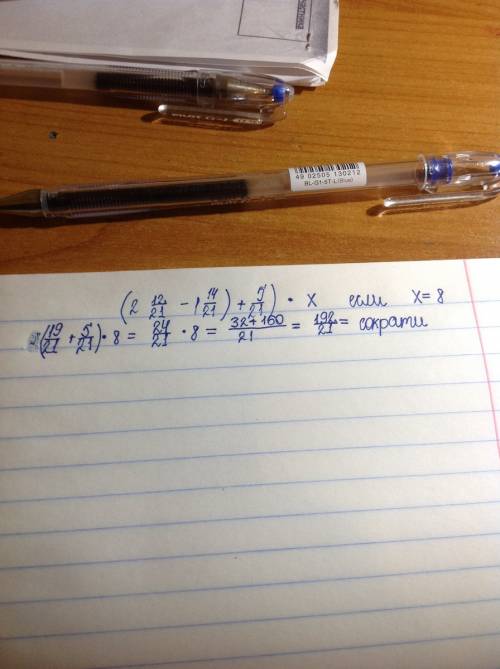 49 02505 130212
BL-G1-5T-L(Blue)
(2 12/21 - 1 14/21) + 5/21) · x если x=8
(19/21 + 5/21) · 8 = 24/21 · 8 = 32+160/21 = 192/21 = сократи